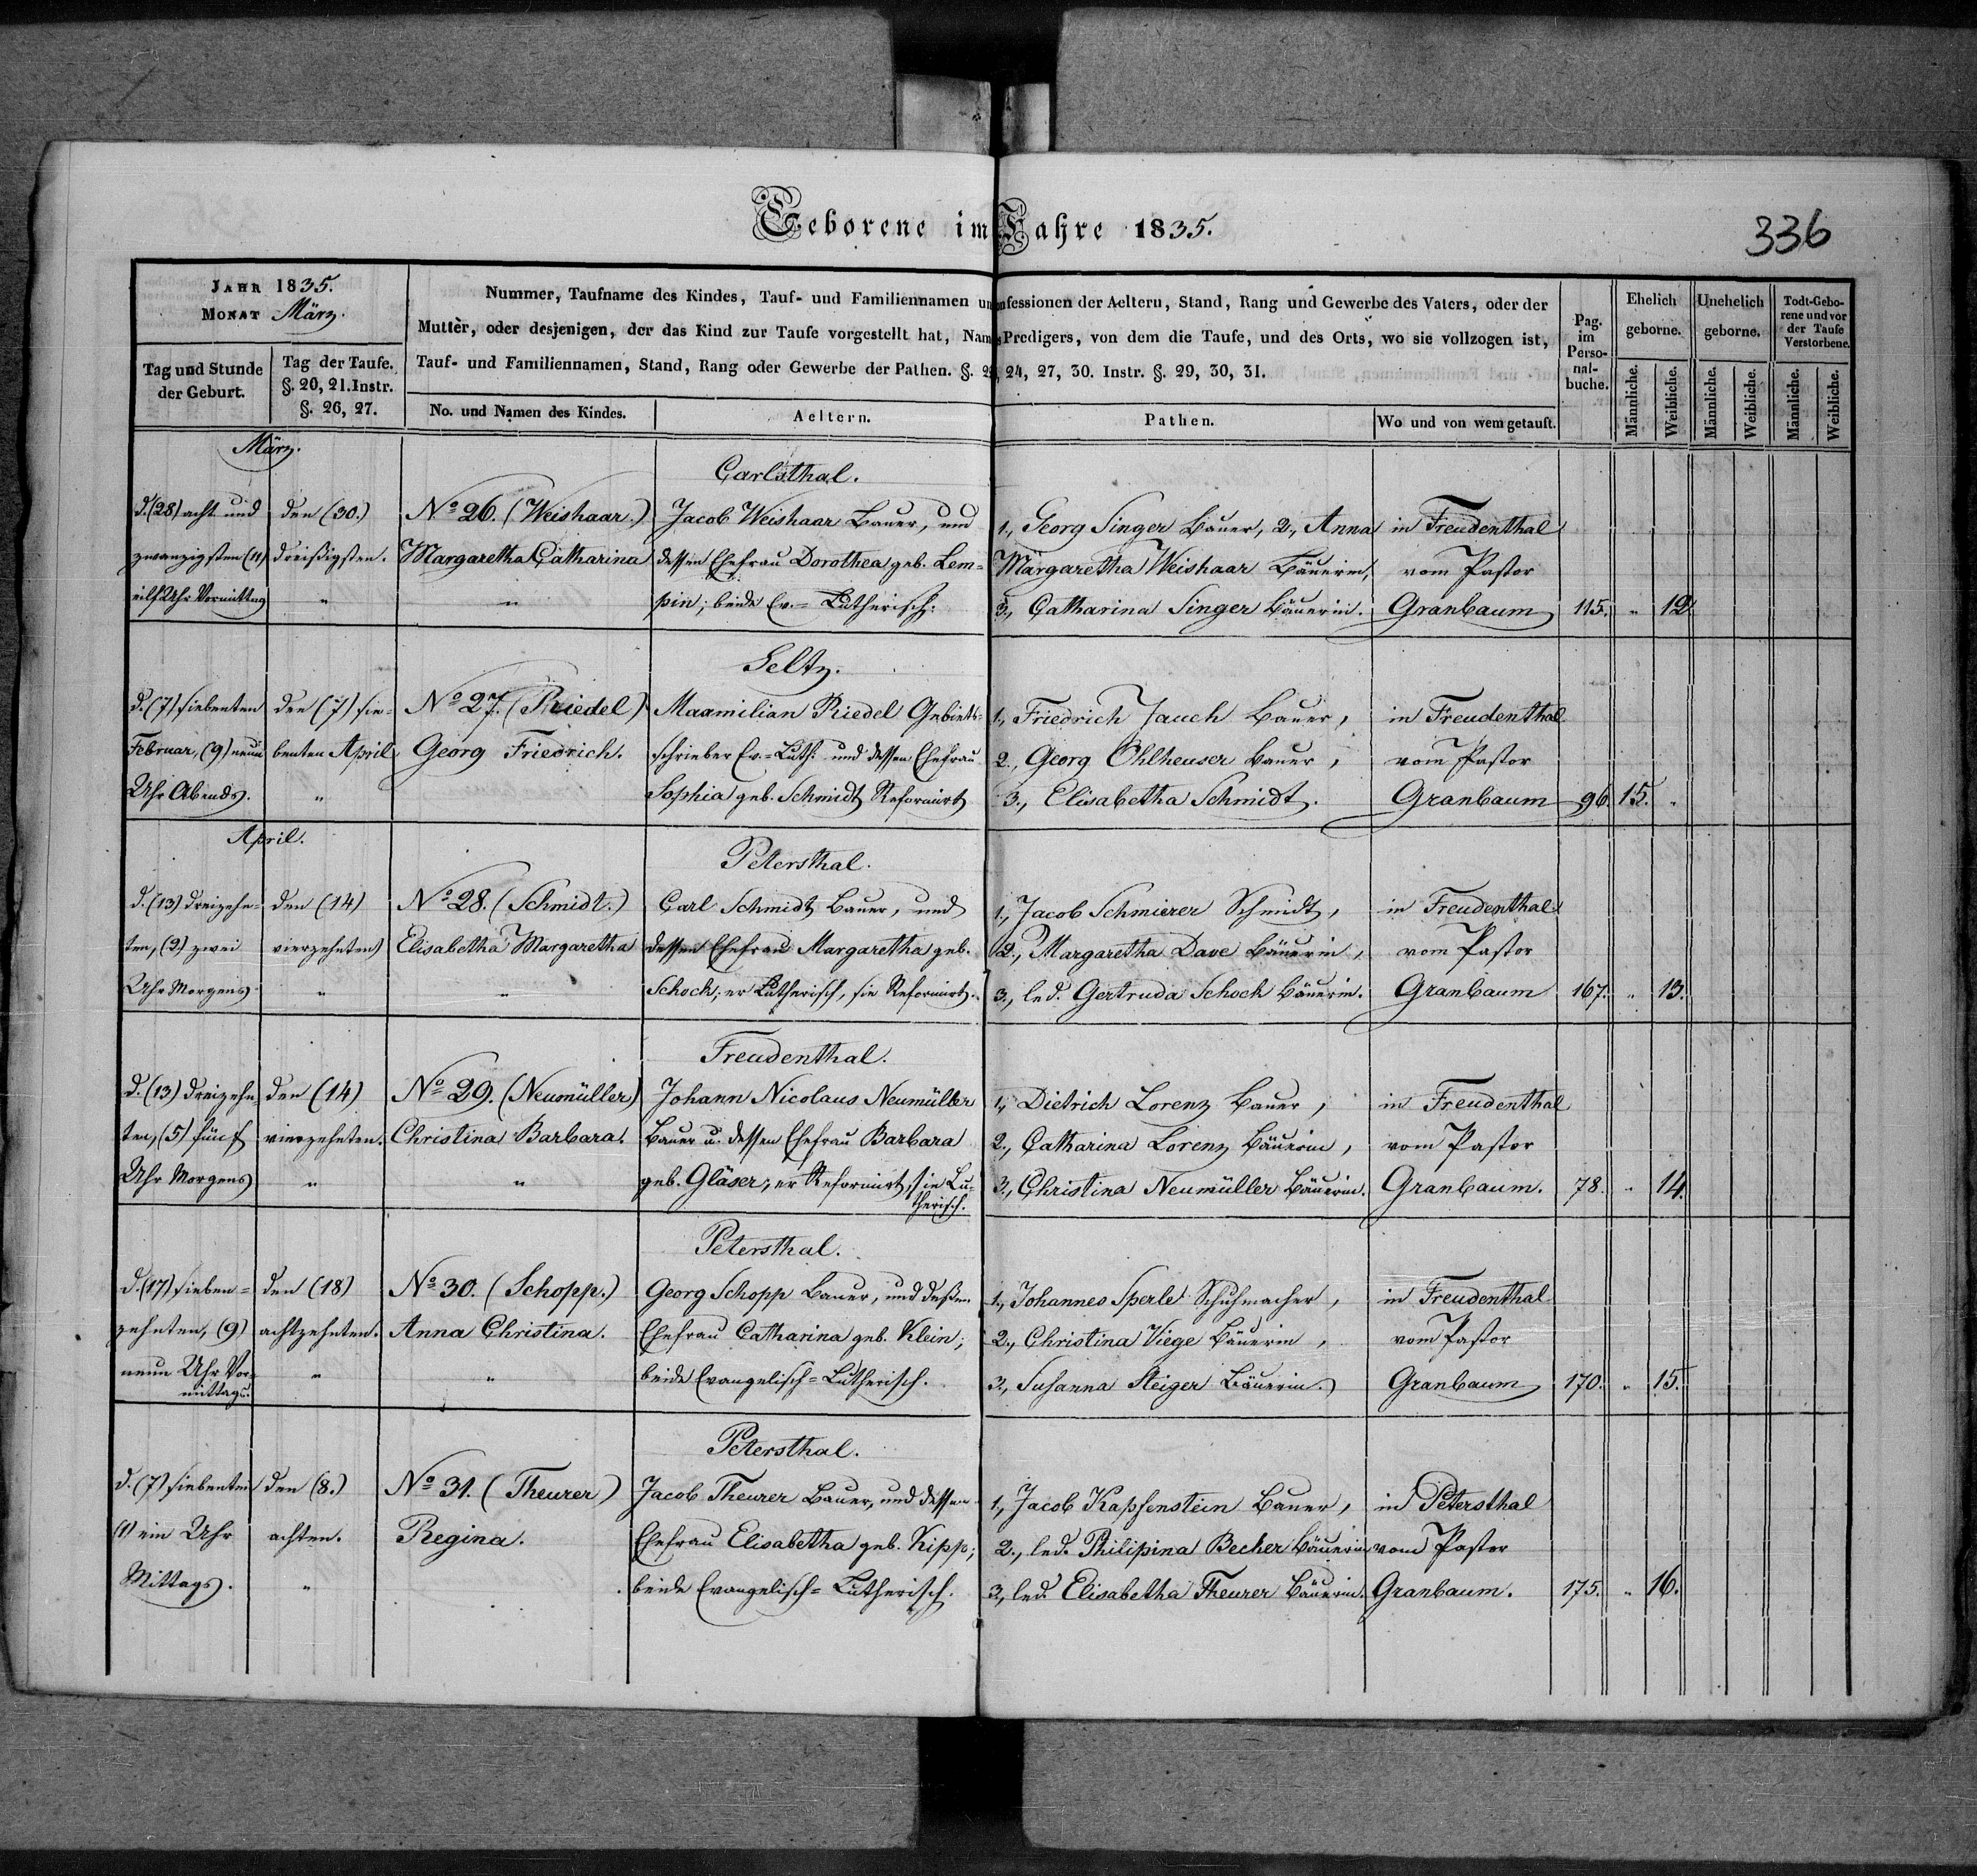 Geborene im Jahre 1835.
336
JAHR 1835.
MONAT März.
Tag und Stunde der Geburt.
Tag der Taufe. §. 20, 21. Instr. §. 26, 27.
Nummer, Taufname des Kindes, Tauf- und Familiennamen un nfessionen der Aeltern, Stand, Rang und Gewerbe des Vaters, oder der
Mutter, oder desjenigen, der das Kind zur Taufe vorgestellt hat, Nam s Predigers, von dem die Taufe, und des Orts, wo sie vollzogen ist,
Tauf- und Familiennamen, Stand, Rang oder Gewerbe der Pathen. §. 2 , 24, 27, 30. Instr. §. 29, 30, 31.
No. und Namen des Kindes.
Aeltern.
Pathen.
Wo und von wem getauft.
Pag. im Perso- nal- buche.
Ehelich geborne.
Unehelich geborne.
Todt-Gebo- rene und vor der Taufe Verstorbene.
Männliche. Weibliche. Männliche. Weibliche. Männliche. Weibliche.
März.
Carlsthal.
d. (28) acht und den (30.) No 26. (Weishaar.) Jacob Weishaar Bauer, und 1., Georg Singer Bauer, 2., Anna in Freudenthal
zwanzigsten (11) dreißigsten. Margaretha Catharina dessen Ehefrau Dorothea geb. Lem= Margaretha Weishaar Bäuerin, vom Pastor
eilf Uhr Vormittag " " pin; beide Ev.= Lutherisch. 3., Catharina Singer Bäuerin. Granbaum 115. " 12.
Seltz.
d. (7) siebenten den (7) sie= No 27. (Riedel) Maxmilian Riedel Gebiets= 1., Friedrich Jauch Bauer, in Freudenthal
Februar, (9) neun benten April Georg Friedrich. schrieber Ev.=Luth. und dessen Ehefrau 2., Georg Ohlheuser Bauer, vom Pastor
Uhr Abends. " Sophia geb. Schmidt Reformirt 3., Elisabetha Schmidt. Granbaum 96. 15. "
April.
Petersthal.
d. (13) dreizehn= den (14) No 28. (Schmidt.) Carl Schmidt Bauer, und 1., Jacob Schmierer Schmidt, in Freudenthal
ten, (2) zwei vierzehnten Elisabetha Margaretha dessen Ehefrau Margaretha geb. 2., Margaretha Dave Bäuerin, vom Pastor
Uhr Morgens " " Schock; er Lutherisch, sie Reformirt. 3., led. Gertruda Schock Bäuerin. Granbaum 167. " 13.
Freudenthal.
d. (13) dreizehn= den (14) No 29. (Neumüller) Johann Nicolaus Neumüller 1., Dietrich Lorenz Bauer, in Freudenthal
ten, (5) fünf vierzehnten. Christina Barbara. Bauer u. dessen Ehefrau Barbara 2., Catharina Lorenz Bäuerin, vom Pastor
Uhr Morgens " " geb. Gläser; er Reformirt, sie Lu= 3., Christina Neumüller Bäuerin. Granbaum. 78. " 14.
therisch.
Petersthal.
d. (17) sieben= den (18) No 30. (Schopp.) Georg Schopp Bauer, und deßen 1., Johannes Sperle Schuhmacher, in Freudenthal
zehnten, (9) achtzehnten. Anna Christina. Ehefrau Catharina geb. Klein; 2., Christina Viege Bäuerin, vom Pastor
neun Uhr Vor= " " beide Evangelisch=Lutherisch. 3., Susanna Steiger Bäuerin. Granbaum 170. " 15.
mittags.
Petersthal.
d. (7) siebenten den (8.) No 31. (Theurer) Jacob Theurer Bauer, und dessen 1., Jacob Kapfenstein Bauer, in Petersthal
(1) ein Uhr achten. Regina. Ehefrau Elisabetha geb. Kipp; 2., led. Philipina Becher Bäuerin vom Pastor
Mittags. " beide Evangelisch=Lutherisch. 3., led. Elisabetha Theurer Bäuerin. Granbaum. 175. " 16.